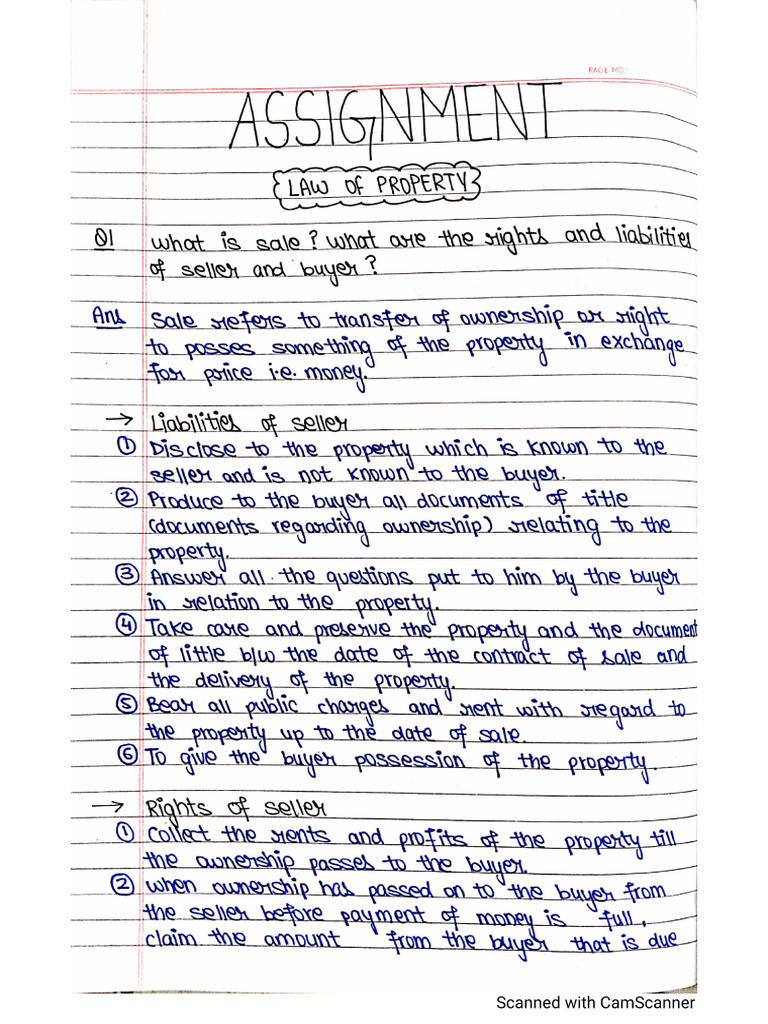 PAGE NO.:
ASSIGNMENT
LAW OF PROPERTY
Q1 What is sale? What are the rights and liabilities
of seller and buyer?
Ans Sale refers to transfer of ownership or right
to posses something of the property in exchange
for price i.e. money.
→ Liabilities of seller
① Disclose to the property which is known to the
seller and is not known to the buyer.
② Produce to the buyer all documents of title
(documents regarding ownership) relating to the
property.
③ Answer all the questions put to him by the buyer
in relation to the property.
④ Take care and preserve the property and the document
of little b/w the date of the contract of sale and
the delivery of the property.
⑤ Bear all public charges and rent with regard to
the property up to the date of sale.
⑥ To give the buyer possession of the property.
→ Rights of seller
① Collect the rents and profits of the property till
the ownership passes to the buyer.
② When ownership has passed on to the buyer from
the seller before payment of money is full,
claim the amount from the buyer that is due
Scanned with CamScanner